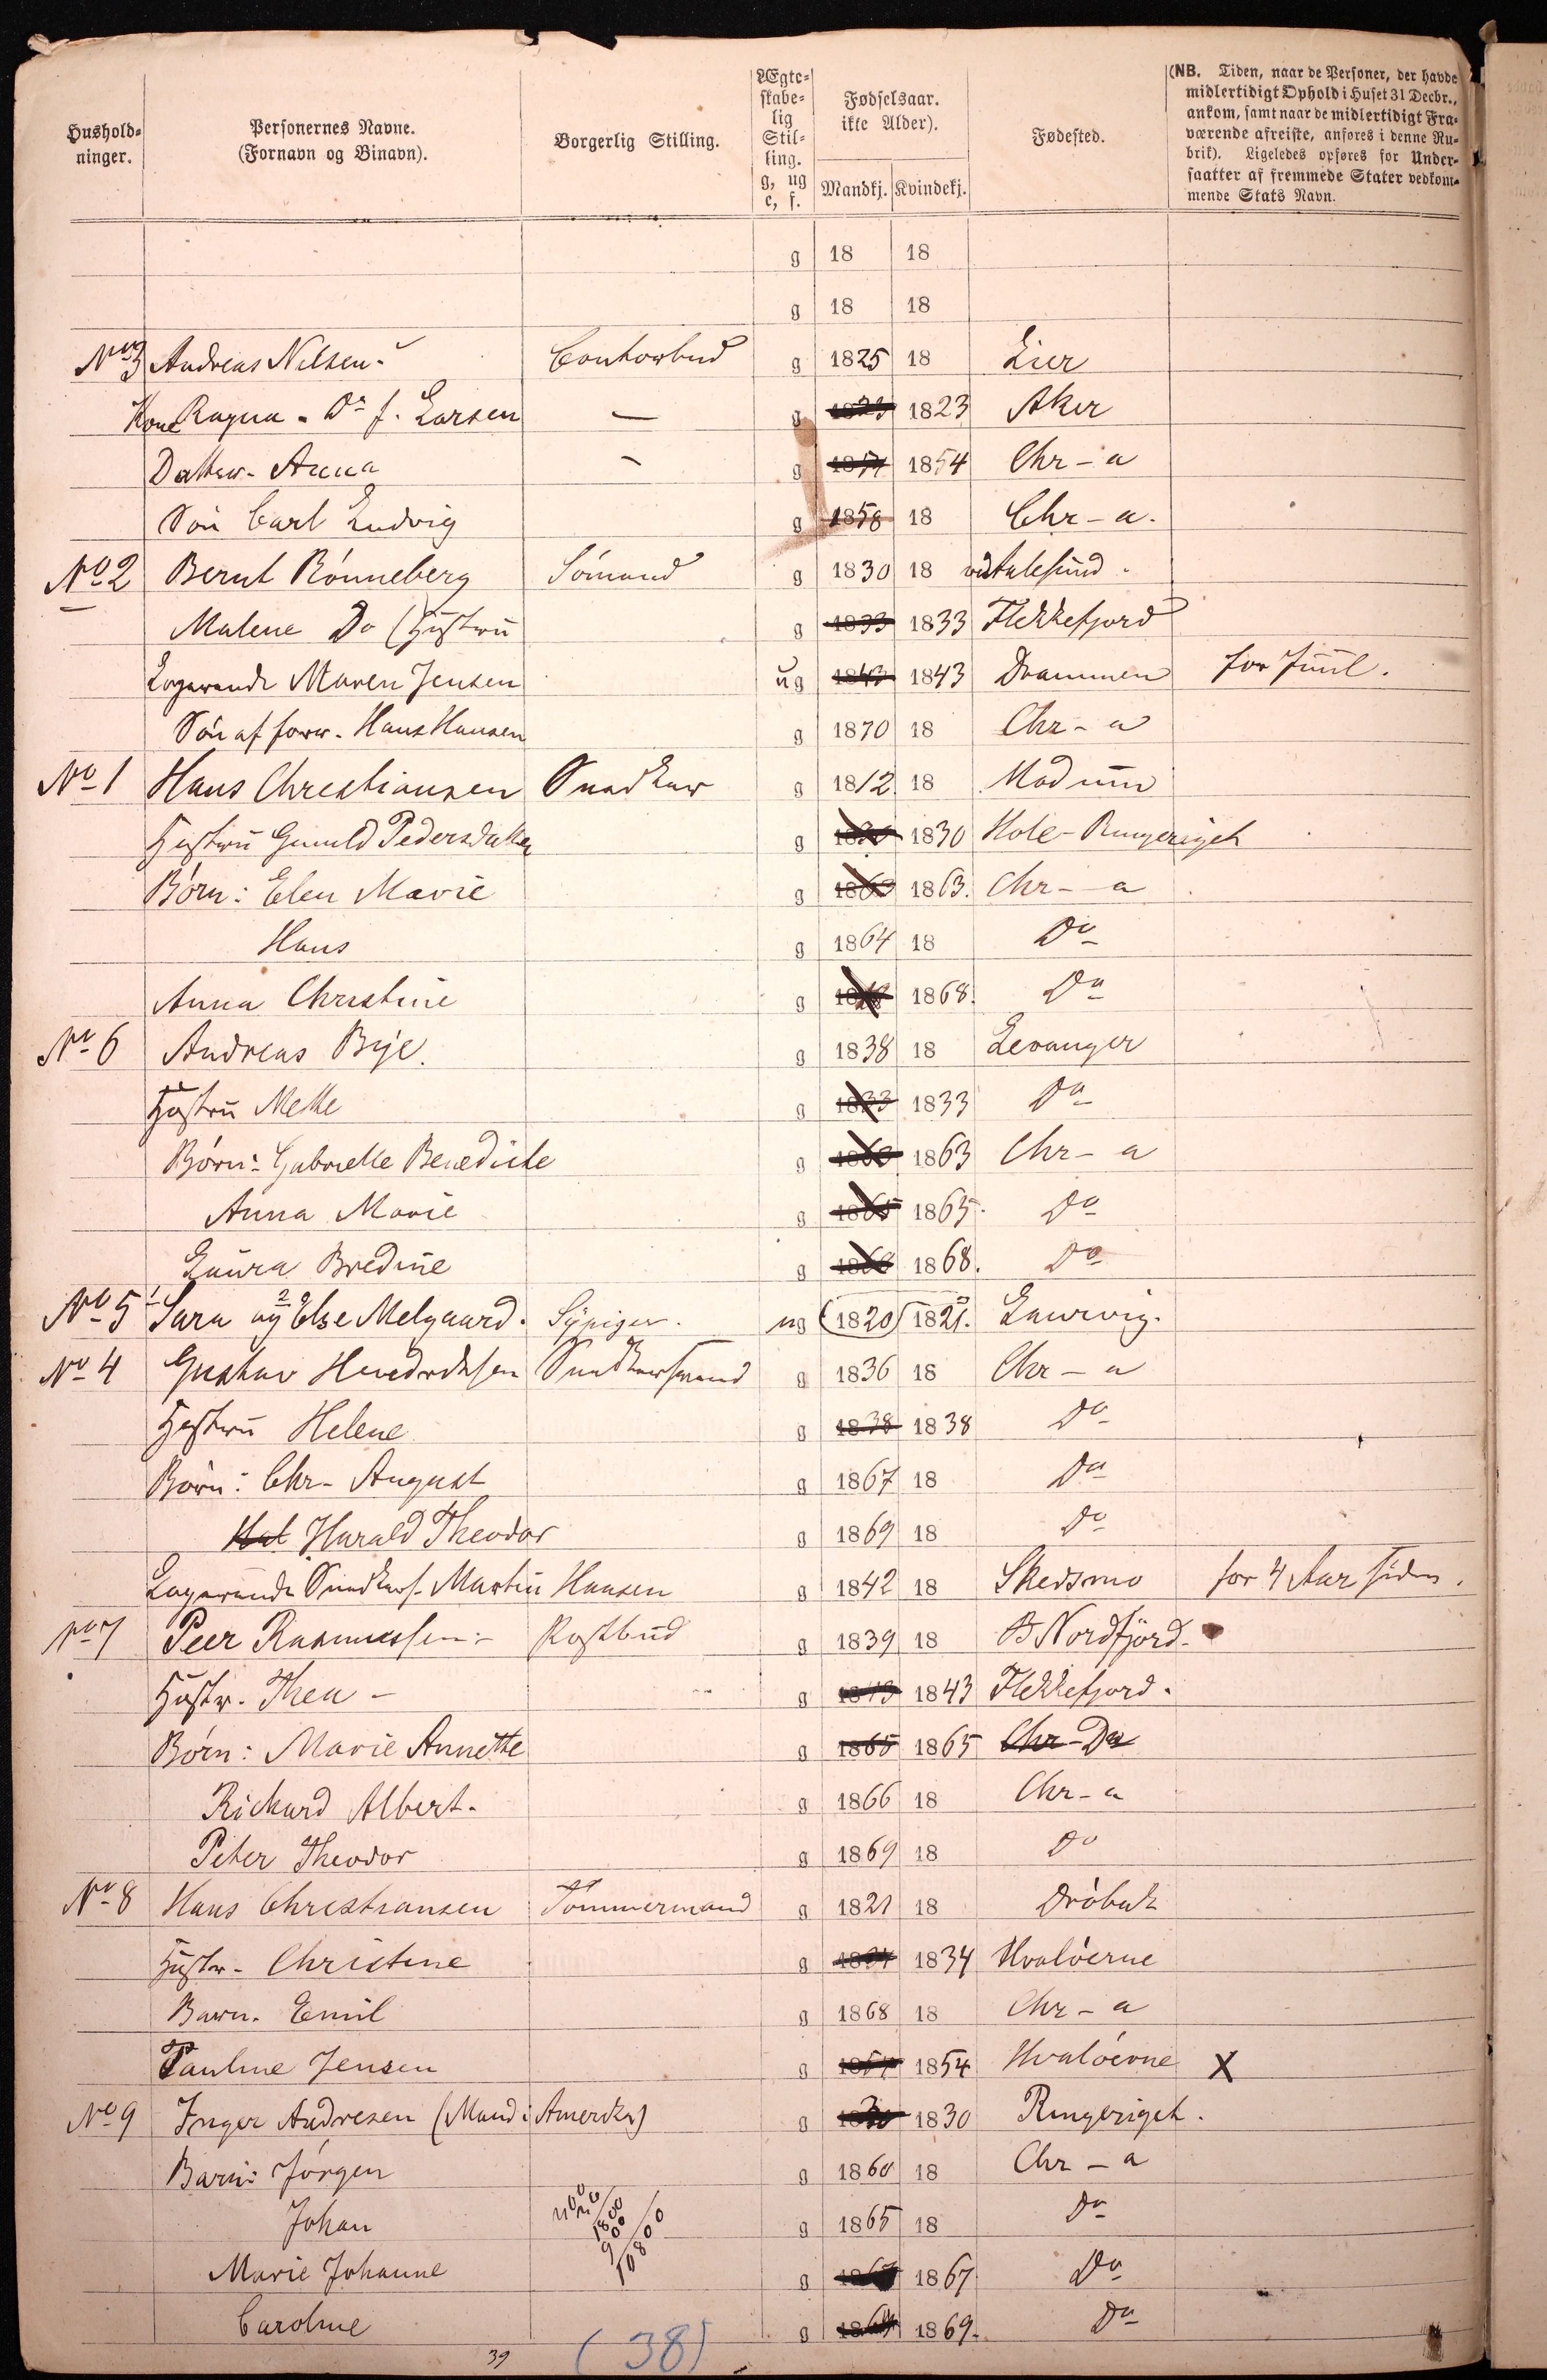 Hushold-
ninger.
Personernes Navne.
(Fornavn og Binavn).
Borgerlig Stilling.
Ægte-
skabe-
lig
Stil-
ling.
g, ug
e, f.
Fødselsaar.
ikke Alder).
Mandkj. Kvindekj.
Fødested.
(NB. Tiden, naar de Personer, der havde
midlertidigt Ophold i Huset 31 Decbr.,
ankom, samt naar de midlertidigt Fra-
værende afreiste, anføres i denne Ru-
brik). Ligeledes opføres for Under-
saatter af fremmede Stater vedkom-
mende Stats Navn.
g 18 18
g 18 18
No 3 Andreas Nilsen Contorbud g 1825 18 Lier
Kone Ragna - Do f. Larsen — g 1823 1823 Aker
Datter - Anna - g 1854 1854 Chr - a
Søn Carl Ludvig g 1858 18 Chr - a.
No 2 Bernt Rønneberg Sømand g 1830 18
Malene Do (Hustru g 1833 1833 Flekkefjord
Logerende Maren Jensen ug 1843 1843 Drammen for
Søn af forr. Hans Hansen g 1870 18 Chr - a
No 1 Hans Christiansen Snedker g 1812 18 Modum
Hustru Gunild Pedersdatter g 1830 1830 Hole - Ringeriget
Børn: Elen Marie g 1863 1863. Chr - a
Hans g 1864 18 Do
Anna Christine g 1868 1868. Do
No 6 Andreas Bye. g 1838 18 Levanger
Hustru Mette g 1833 1833 Do
Børn: Gabrielle Benedicte g 1863 1863 Chr - a
Anna Marie g 1865 1865. Do
Laura Bredine g 1868 1868. Do
No 5 1 Sara og 2 Else Melgaard. Sypiger. ug (1820) 1821. Laurvig.
No 4 Gustav Hendriksen Snedkersvend g 1836 18 Chr - a
Hustru Helene g 1838 1838 Do
Børn: Chr - August g 1867 18 Do
Hal Harald Theodor g 1869 18 Do
Logerende Snedkers. Martin Hansen g 1842 18 Skedsmo for 4 Aar siden.
No 7 Peer Rasmussen:- Postbud g 1839 18 Nordfjord.
Hustr. Thea - g 1843 1843 Flekkefjord.
Børn: Marie Annette g 1865 1865 Chr - Do
Richard Albert. g 1866 18 Chr - a
Peter Theodor g 1869 18 Do
No 8 Hans Christiansen Tømmermand g 1821 18 Drøbak
Hustr - Christine g 1834 1834 Hvaløerne
Barn. Emil g 1868 18 Chr - a
Pauline Jensen g 1854 1854 Hvaløerne X
No 9 Inger Andresen (Mand i Amerika) g 1830 1830 Ringeriget.
Barn: Jørgen g 1860 18 Chr - a
Johan g 1865 18 Do
1800
900
10800
Marie Johanne g 1867 1867 Do
Caroline g 1869 1869. Do
39 (38)